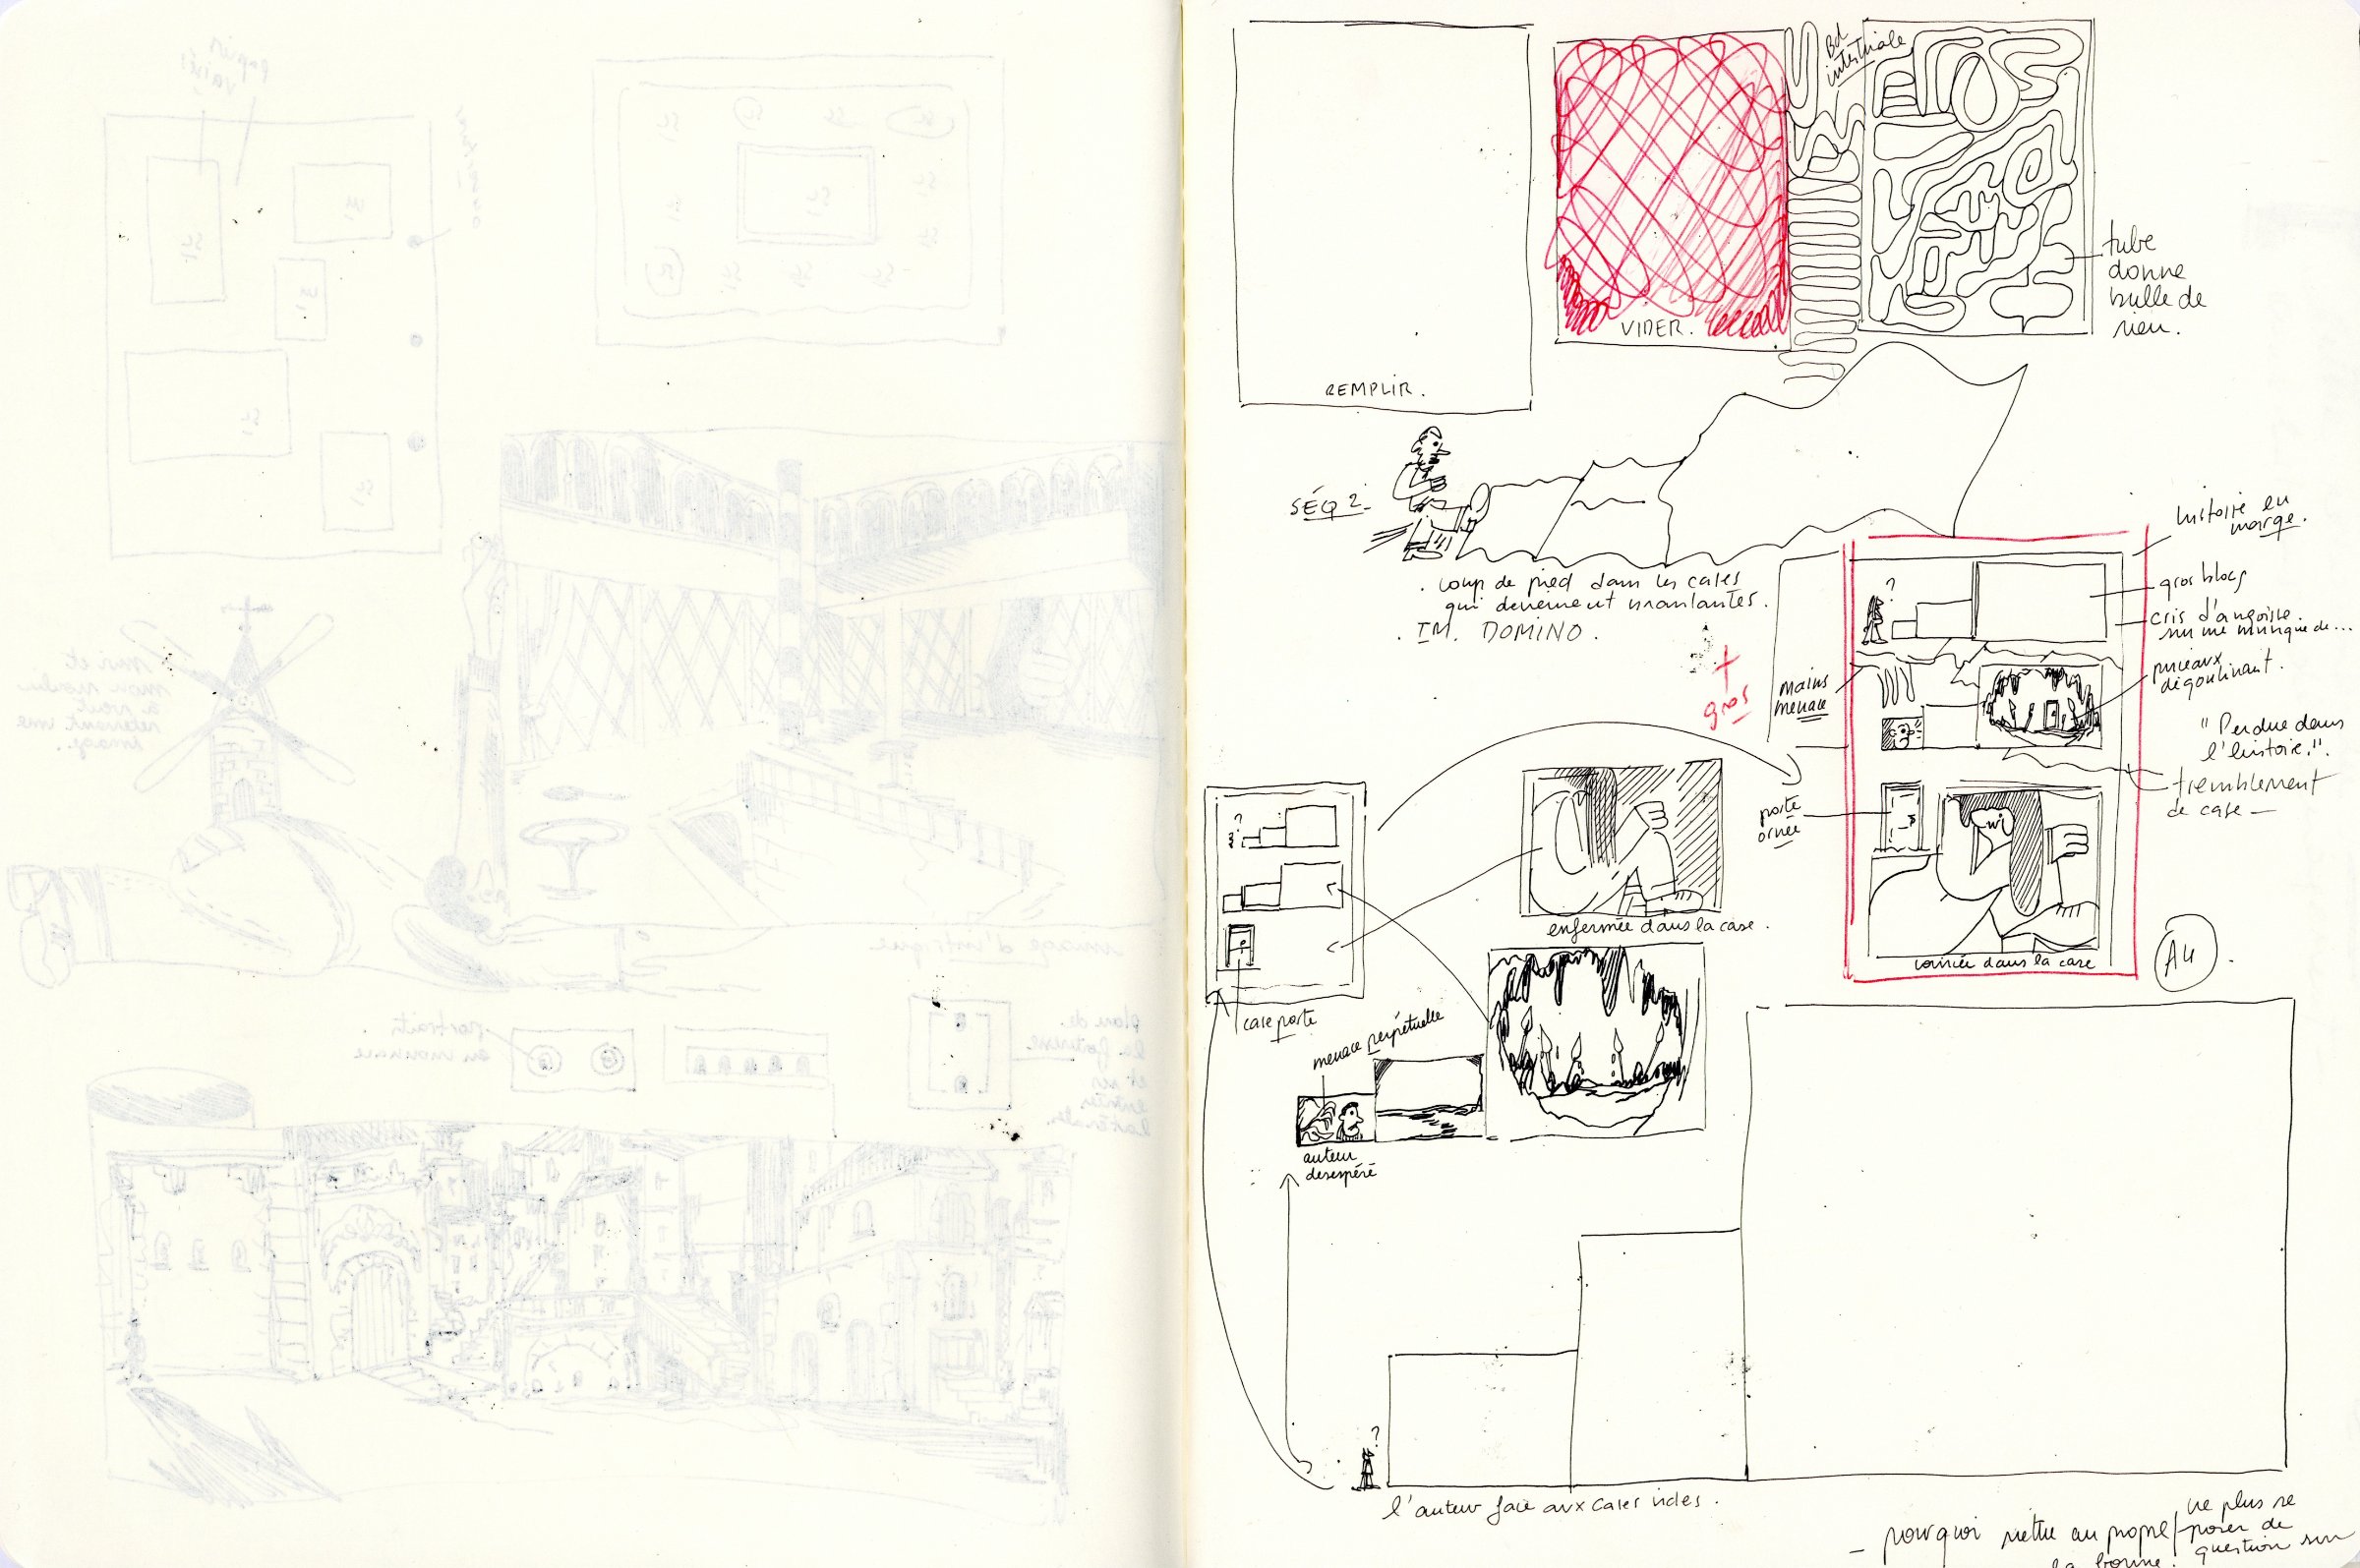 Bd
intestinale
tube
donne
bulle de
rien.
VIDER.
REMPLIR.
SÉQ 2.
histoire en
marge.
. coup de pied dans les cases
qui deviennent
. IM. DOMINO.
?
gros blocs
cris d'angoisse
sur une musique de...
+
gros
mains
menace
pinceaux
dégoulinant.
"Perdue dans
l'histoire."
tremblement
de case —
porte
ornée
?
enfermée dans la case.
coincée dans la case
A4
case porte
menace perpétuelle
auteur
desespéré
?
l'auteur face aux cases vides.
— pourquoi mettre au propre /
ne plus se
poser de
question sur
la bonne
papier
moi et
mon
à vent
retenant une
image d'antique
portrait
en
plan de
la
et ses